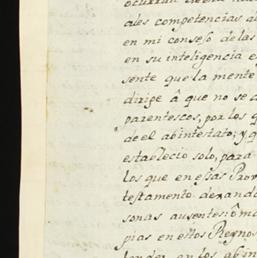 ales competencias a
en mi consejo de las
en su inteligencia e
sente que la mente
dirige â que no se
parentescos, por los
de el abintestato; y
establecio solo, para
los que en esas Prov
testamento dexando
sonas ausentes ô
pias en estos Reynos
en los abin